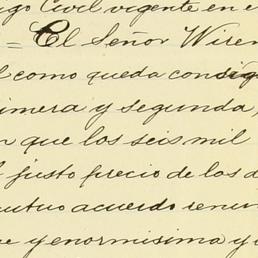 igo Civil vigente en e
= El Señor Wiren
l como queda consig
rimera y segunda,
n que los seis mil
l justo precio de los d
utuo acuerdo renun
e y enormisima y d